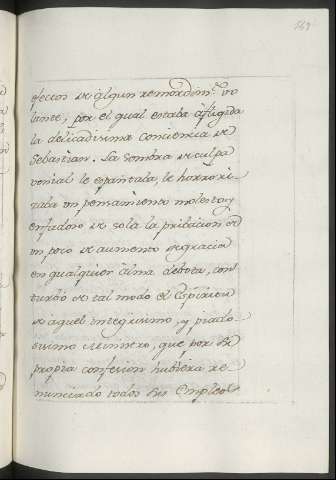 efectos de algun remordim.to vo
lante, por el qual estaba afligida
la delicadisima conciencia de
Sebastian. La sombra de culpa
venial le espantaba, le horrori
zaba un pensamiento molesto, y
enfadoso de sola la pribacion de
un poco de aumento de gracia
en qualquier alma debota, con
turbó de tal modo el Espiritu
de aquel integrisimo, y piado
sisimo Ministro, que por su
propia confesion hubiera re
nunciado todos sus Empleos